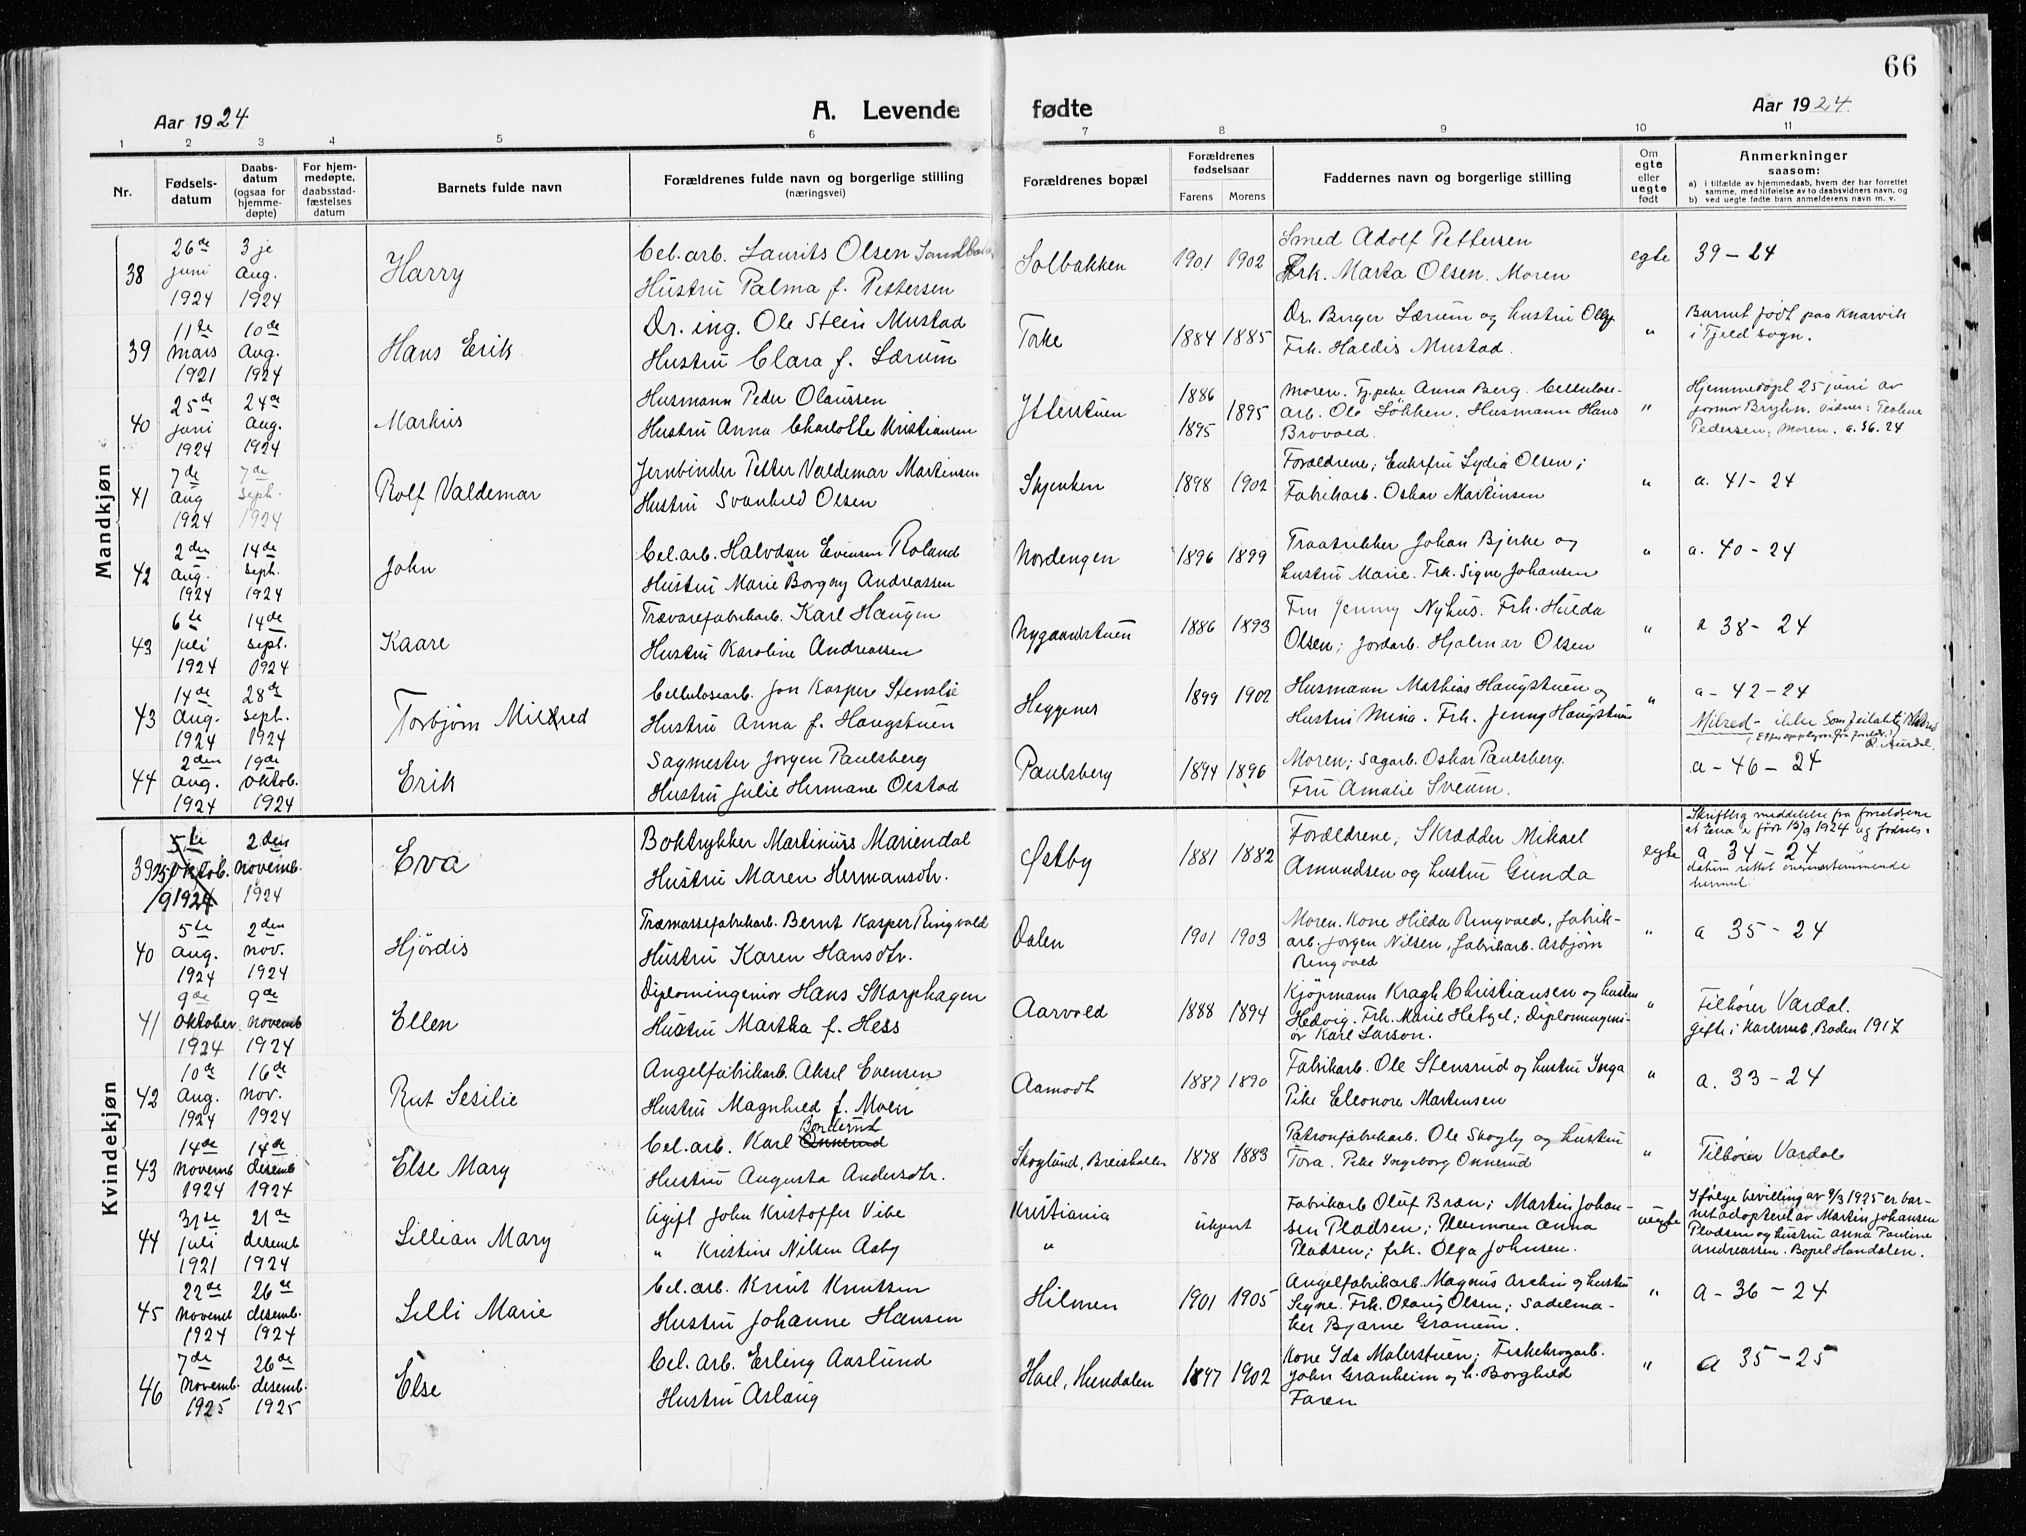 66
Aar 1924
A. Levende fødte
Aar 1924.
1 2 3 4 5 6 7 8 9 10 11
Nr.
Fødsels-
datum
Daabs-
datum
(ogsaa for
hjemme-
døpte)
For hjem-
medøpte,
daabsstad-
fæstelses
datum
Barnets fulde navn
Forældrenes fulde navn og borgerlige stilling
(næringsvei)
Forældrenes bopæl
Forældrenes
fødselsaar
Farens Morens
Faddernes navn og borgerlige stilling
Om
egte
eller
uegte
født
Anmerkninger
saasom:
a) i tilfælde av hjemmedaab, hvem der har forrettet
samme, med tilføielse av to daabsvidners navn, og
b) ved uegte fødte barn anmelderens navn m. v.
Mandkjøn
38
26de
juni
1924
3je
Aug.
1924
Harry
Cel. arb. Laurits Olsen Sandbakken
Hustru Palma f. Pettersen
Solbakken
1901 1902
Smed Adolf Pettersen
Frk. Marta Olsen. Moren
egte
39 - 24
39
11te
Mars
1921
10de
Aug.
1924
Hans Erik
Dr. ing. Ole Stein Mustad
Hustru Clara f. Lærum
Torke
1884 1885
Dr. Birger Lærum og hustru Olly
Frk. Haldis Mustad.
"
Barnet født paa Knarvik
i Tjeld sogn.
40
25de
juni
1924
24de
Aug.
1924
Markus
Husmann Peder Olaussen
Hustru Anna Charlotte Kristiansen
Ytterstuen
1886
1895
1895
Moren. Pike Anna Berg. Cellulose-
arb. Ole Løkken, Husmann Hans
Brovold.
"
Hjemmedøpt 25 juni av
jormor Bryhn. Vidner: Teoline
Pedersen, Moren. a. 36. 24
41
7de
Aug
1924
7de
Seph.
1924
Rolf Valdemar
Jernbinder Petter Valdemar Martinsen
Hustru Svanhild Olsen
Skjenken
1898 1902
Forældrene; Enkefru Lydia Olsen;
Fabrikarb. Oskar Martinsen
"
a. 41 - 24
42
2den
Aug.
1924
14de
seph.
1924
John
Cel. arb. Halvdan Evensen Roland
Hustru Marie Borgny Andreassen
Nordengen
1896 1899
Traatrekker Johan Bjerke og
hustru Marie. Frk. Signe Johansen
"
a. 40 - 24
43
6te
juli
1924
14de
sept.
1924
Kaare
Trævarefabrikarb. Karl Haugen
Hustru Karoline Andreassen
Nygaardstuen
1886 1893
Fru Jenny Nyhus. Frk. Hilda
Olsen; Jordarb. Hjalmar Olsen
"
a 38 - 24
43
14de
Aug.
1924
28de
seph.
1924
Torbjørn Mildred
Cellulosearb. Jon Kasper Stenslie
Hustru Anna f. Haugstuen
Heggenes
1899 1902
Husmann Mathias Haugstuen og
Hustru Mina. Frk. Jenny Haugstuen
"
a - 42 - 24
Milred - ikke som feilaktig Mildred
(Efter opplysn. fra foreldr.)
44
2den
Aug.
1924
19de
Oktob.
1924
Erik
Sagmester Jørgen Paulsberg
Hustru Julie Hermane Olstad
Paulsberg
1894 1896
Moren; Sagarb. Oskar Paulsberg.
Fru Amalie Sveum.
a - 46 - 24
Kvindekjøn
39
5te
Oktob.
1924
2den
Novemb.
1924
Eva
Boktrykker Martinius Mariendal
Hustru Maren Hermansdtr.
Østby
1881 1882
Forældrene, Skrædder Mikael
Amundsen og hustru Gunda
egte
Skriftlig meddelelse fra foreldrene
at Eva er født 13/9 1924 og fødsels-
a 34 - 24
datum rettet overensstemmende
hermed
40
5te
Aug.
1924
2den
Nov.
1924
Hjørdis
Træmassefabrikarb. Bernt Kasper Ringvold
Hustru Karen Hansdtr.
Dalen
1901 1903
Moren. Kone Hilda Ringvold, Fabrik-
arb. Jørgen Nilsen, Fabrikarb. Asbjørn
Ringvold
"
a 35 - 24
41
9de
Oktober
1924
9de
Novemb
1924
Ellen
Diplomingeniør Hans Skarphagen
Hustru Martha f. Hess
Aarvold
1888 1894
Kjøpmann Kragh Christiansen og hustru
Hedvig. Frk. Marie Hetzel; Diplomingeni-
ør Karl Larson.
"
Tilhører Vardal.
gifte i Karlsruh, Baden 1917
42
10de
Aug.
1924
16de
Nov.
1924
Rut Sesilie
Angelfabrikarb. Aksel Evensen
Hustru Magnhild f. Moen
Aamodt
1887 1890
Fabrikarb. Ole Stensrud og hustru Inga
Pike Eleonore Martinsen
"
a. 33 - 24
43
14de
Novemb
1924
14de
desemb
1924
Else Mary
Bonderud
Cel. arb. Karl Onnerud
Hustru Augusta Andersdtr.
Skoglund, Breiskallen
1878 1883
Patronfabrikarb. Ole Skogly og hustru
Tora. Pike Ingeborg Onnerud
"
Tilhører Vardal
44
31te
Juli
1921
21de
desemb
1924
Lillian Mary
Ugift John Kristoffer Vibe
" Kristine Nilsen Aaby
Kristiania
"
ukjent
Fabrikarb Oluf Bræn; Martin Johan-
sen Pladsen; Husmoren Anna
Pladsen; frk. Olga Johnsen.
uegte
Ifølge bevilling av 9/3 1925 er bar-
net adopteret av Martin Johansen
Pladsen og hustru Anna Pauline
Andreassen. Bopel Hundalen.
45
22de
Novemb
1924
26de
desemb.
1924
Lilli Marie
Cel. arb. Knut Knutsen
Hustru Johanne Hansen
Hilmen
1901 1905
Angelfabrikarb. Magnus Aschim og hustru
Signe. Frk. Olaug Olsen; Sadelma-
ker Bjarne Granum.
"
a - 36 - 24
46
7de
Novemb.
1925
26de
desemb.
1925
Else
Cel. arb. Erling Aaslund
Hustru Aslaug
Hoel, Hundalen
1897 1902
Kone Ida Malerstuen; Fiskekrogarb.
John Granheim og h. Borghild
Faren
"
a 35 - 25